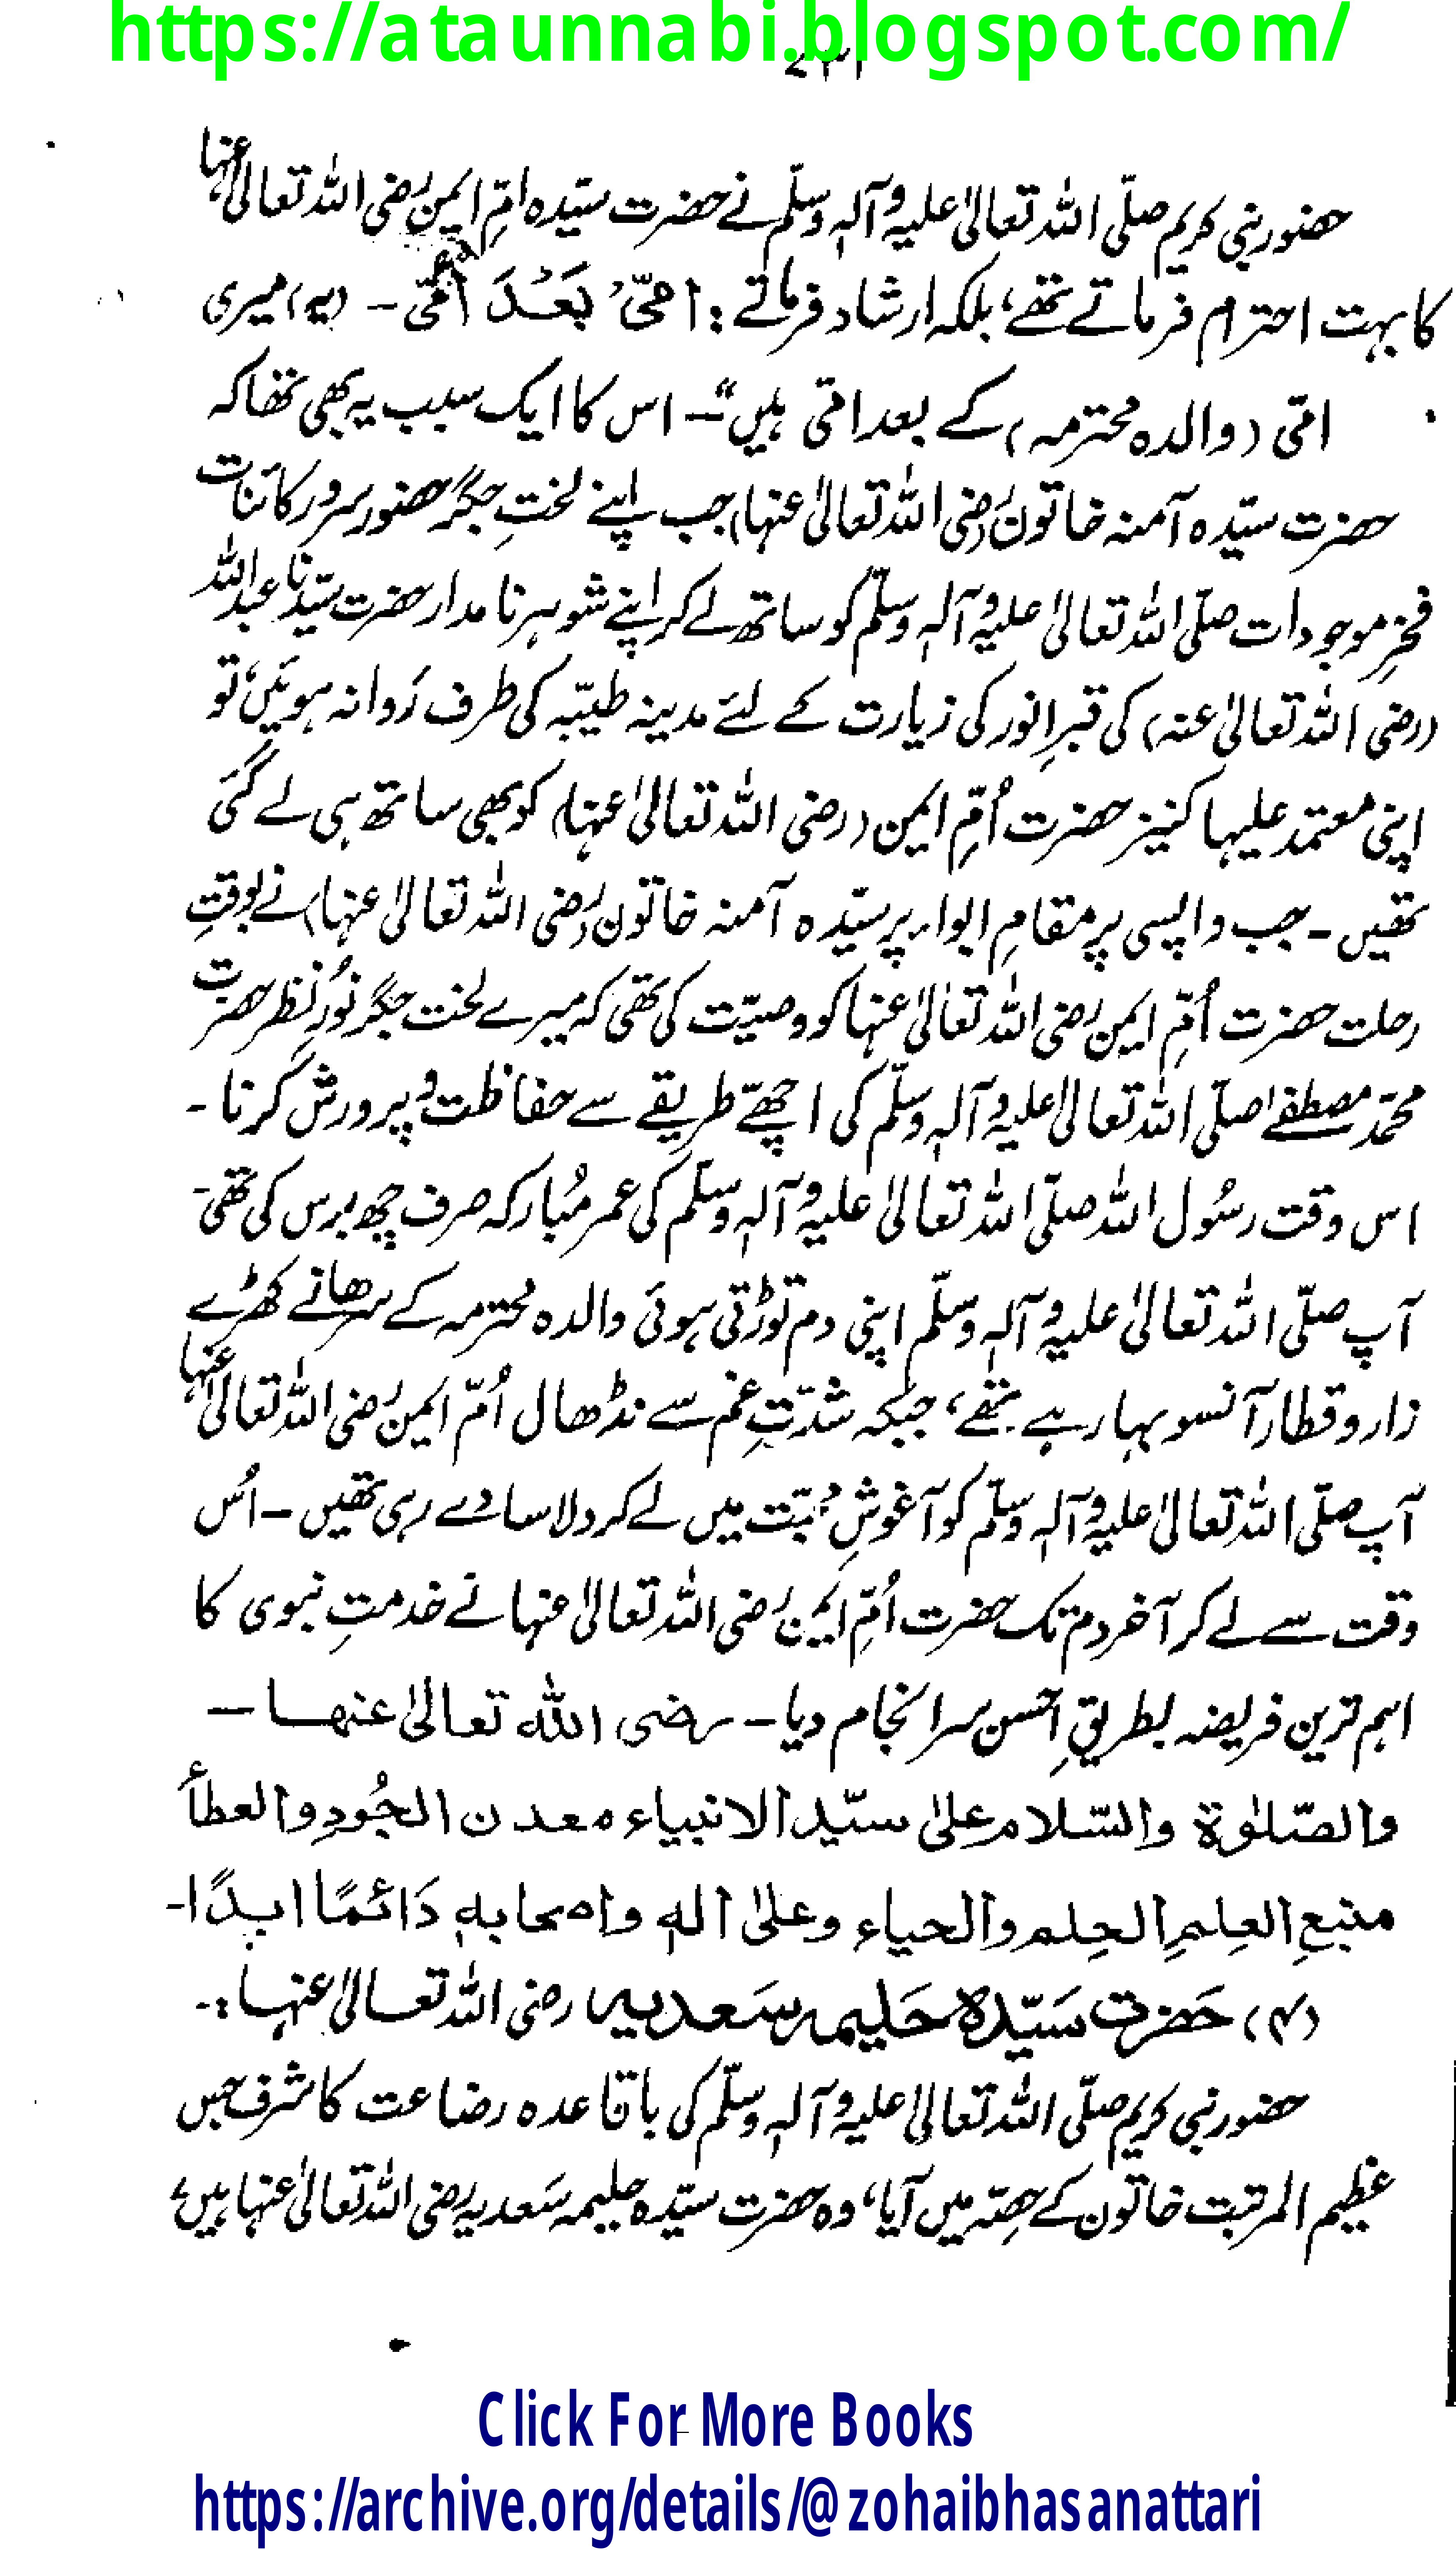 https://ataunnabi.blogspot.com/
۷۳۱
حضور نبی کریم صلّی اللہ تعالیٰ علیہ وآلہٖ وسلّم نے حضرت سیّدہ امِّ ایمن رضی اللہ تعالیٰ عنہا
کا بہت احترام فرماتے تھے، بلکہ ارشاد فرماتے : اُمِّیْ بَعْدَ اُمِّی ـ (یہ) میری
امّی (والدہ محترمہ) کے بعد امّی ہیں“ـ اس کا ایک سبب یہ بھی تھا کہ
حضرت سیّدہ آمنہ خاتون (رضی اللہ تعالیٰ عنہا) جب اپنے لختِ جگر حضور سرورِ کائنات
فخرِ موجودات صلّی اللہ تعالیٰ علیہ وآلہٖ وسلّم کو ساتھ لے کر اپنے شوہرِ نامدار حضرت سیّدنا عبداللہ
(رضی اللہ تعالیٰ عنہ) کی قبرِ انور کی زیارت کے لئے مدینہ طیّبہ کی طرف رَوانہ ہوئیں، تو
اپنی معتمد علیہا کنیز حضرت اُمِّ ایمن (رضی اللہ تعالیٰ عنہا) کو بھی ساتھ ہی لے گئی
تھیں ـ جب واپسی پر مقامِ ابواء پر سیّدہ آمنہ خاتون (رضی اللہ تعالیٰ عنہا) نے بوقتِ
رحلت حضرت اُمِّ ایمن رضی اللہ تعالیٰ عنہا کو وصیّت کی تھی کہ میرے لخت جگر نُورِ نظر حضرت
محمّد مصطفےٰ صلّی اللہ تعالیٰ علیہ وآلہٖ وسلّم کی اچھّے طریقے سے حفاظت و پرورش کرنا ـ
اس وقت رسُول اللہ صلّی اللہ تعالیٰ علیہ وآلہٖ وسلّم کی عمر مُبارکہ صرف چھ برس کی تھی ـ
آپ صلّی اللہ تعالیٰ علیہ وآلہٖ وسلّم اپنی دم توڑتی ہوئی والدہ محترمہ کے سرھانے کھڑے
زار و قطار آنسو بہا رہے تھے، جبکہ شدّتِ غم سے نڈھال اُمِّ ایمن رضی اللہ تعالیٰ عنہا
آپ صلّی اللہ تعالیٰ علیہ وآلہٖ وسلّم کو آغوشِ محبّت میں لے کر دلاسا دے رہی تھیں ـ اُس
وقت سے لے کر آخر دم تک حضرت اُمِّ ایمن رضی اللہ تعالیٰ عنہا نے خدمتِ نبوی کا
اہم ترین فریضہ بطریقِ احسن سرانجام دیا ـ رضی اللہ تعالیٰ عنہا ـ
والصّلوٰة والسّلام علیٰ سیّد الانبیاء معدن الجُودِ والعطأ
منبعِ العِلمِ الحِلم والحیاء وعلیٰ اٰلہٖ واصحابہٖ دَائمًا ابدًا ـ
(۴) حَضرت سَیّدہ حَلیمہ سَعدیہ رضی اللہ تعالیٰ عنہا :ـ
حضور نبی کریم صلّی اللہ تعالیٰ علیہ وآلہٖ وسلّم کی باقاعدہ رضاعت کا شرف جس
عظیم المرتبت خاتون کے حِصّہ میں آیا، وہ حضرت سیّدہ حلیمہ سَعدیہ رضی اللہ تعالیٰ عنہا ہیں؛
Click For More Books
https://archive.org/details/@zohaibhasanattari